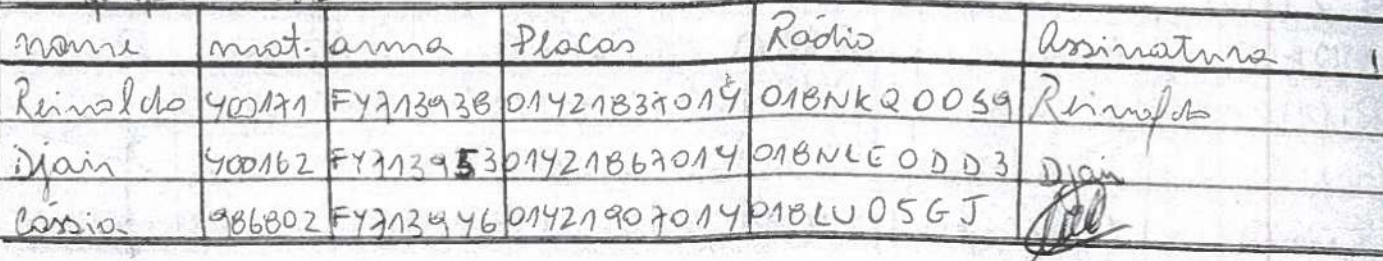 nome mat. arma Placas Rádio Assinatura
Reinaldo 400171 FY713938 01421837014 018NKQ0059 Reinaldo
Djain 400162 FY713953 01421867014 018NLE0DD3 Djain
Cássio 986802 FY713946 01421907014 018LU05GJ